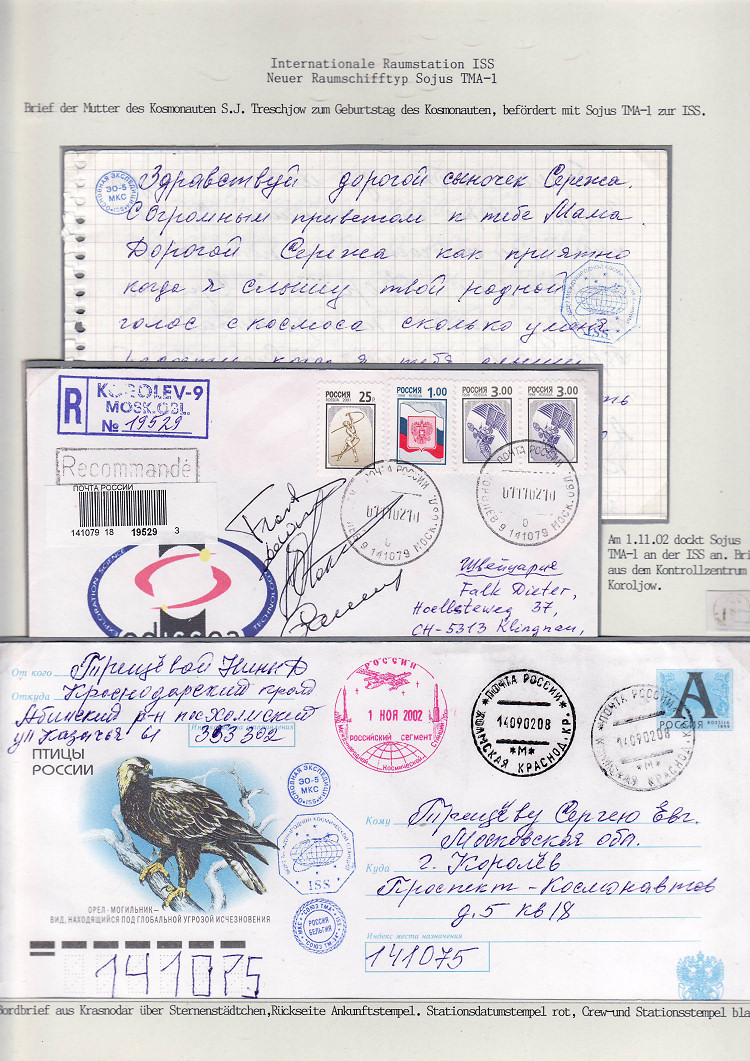 Internationale Raumstation ISS
Neuer Raumschifftyp Sojus TMA-1
Brief der Mutter des Kosmonauten S.J. Treschjow zum Geburtstag des Kosmonauten, befördert mit Sojus TMA-1 zur ISS.
ОСНОВНАЯ ЭКСПЕДИЦИЯ
ЭО-5
МКС
ISS
Здравствуй дорогой сыночек Сережа.
С Огромным приветом к тебе Мама.
Дорогой Сережа как приятно
когда я слышу твой родной
голос с космоса сколько у меня
ISS
KOROLEV-9
MOSK.OBL.
R
№ 19529
Recommandé
ПОЧТА РОССИИ
141079 18 19529 3
РОССИЯ 25
РОССИЯ 1.00
РОССИЯ 3.00
РОССИЯ 3.00
ПОЧТА РОССИИ
КОРОЛЕВ 9 141079 МОСК.ОБЛ.
odissea
Швейцария
Falk Dieter,
Hoelbsteweg 37,
CH-5313 Klingnau,
Am 1.11.02 dockt Sojus
TMA-1 an der ISS an. Bri
aus dem Kontrollzentrum
Koroljow.
От кого Трещёвой Нины Ф
Откуда Краснодарский край
Абинский р-н пос Холмский
ул Казачья 61 353302
ПТИЦЫ
РОССИИ
РОССИЯ
1 НОЯ 2002
РОССИЙСКИЙ СЕГМЕНТ
Международной Космической Станции
ПОЧТА РОССИИ
14090208
*М*
ХОЛМСКАЯ КРАСНОД.КР.
ПОЧТА РОССИИ
14090208
*М*
ХОЛМСКАЯ КРАСНОД.КР.
А
РОССИЯ
ОСНОВНАЯ ЭКСПЕДИЦИЯ
ЭО-5
МКС
ISS
ISS
СОЮЗ ТМА
РОССИЯ
БЕЛЬГИЯ
МКС
Кому Трещёву Сергею Евг.
Московская обл.
Куда г. Королёв
Проспект-Космонавтов
д.5 кв 18
Индекс места назначения
141075
ОРЕЛ-МОГИЛЬНИК–
ВИД, НАХОДЯЩИЙСЯ ПОД ГЛОБАЛЬНОЙ УГРОЗОЙ ИСЧЕЗНОВЕНИЯ
141075
Bordbrief aus Krasnodar über Sternenstädtchen,Rückseite Ankunftstempel. Stationsdatumstempel rot, Crew-und Stationsstempel bla